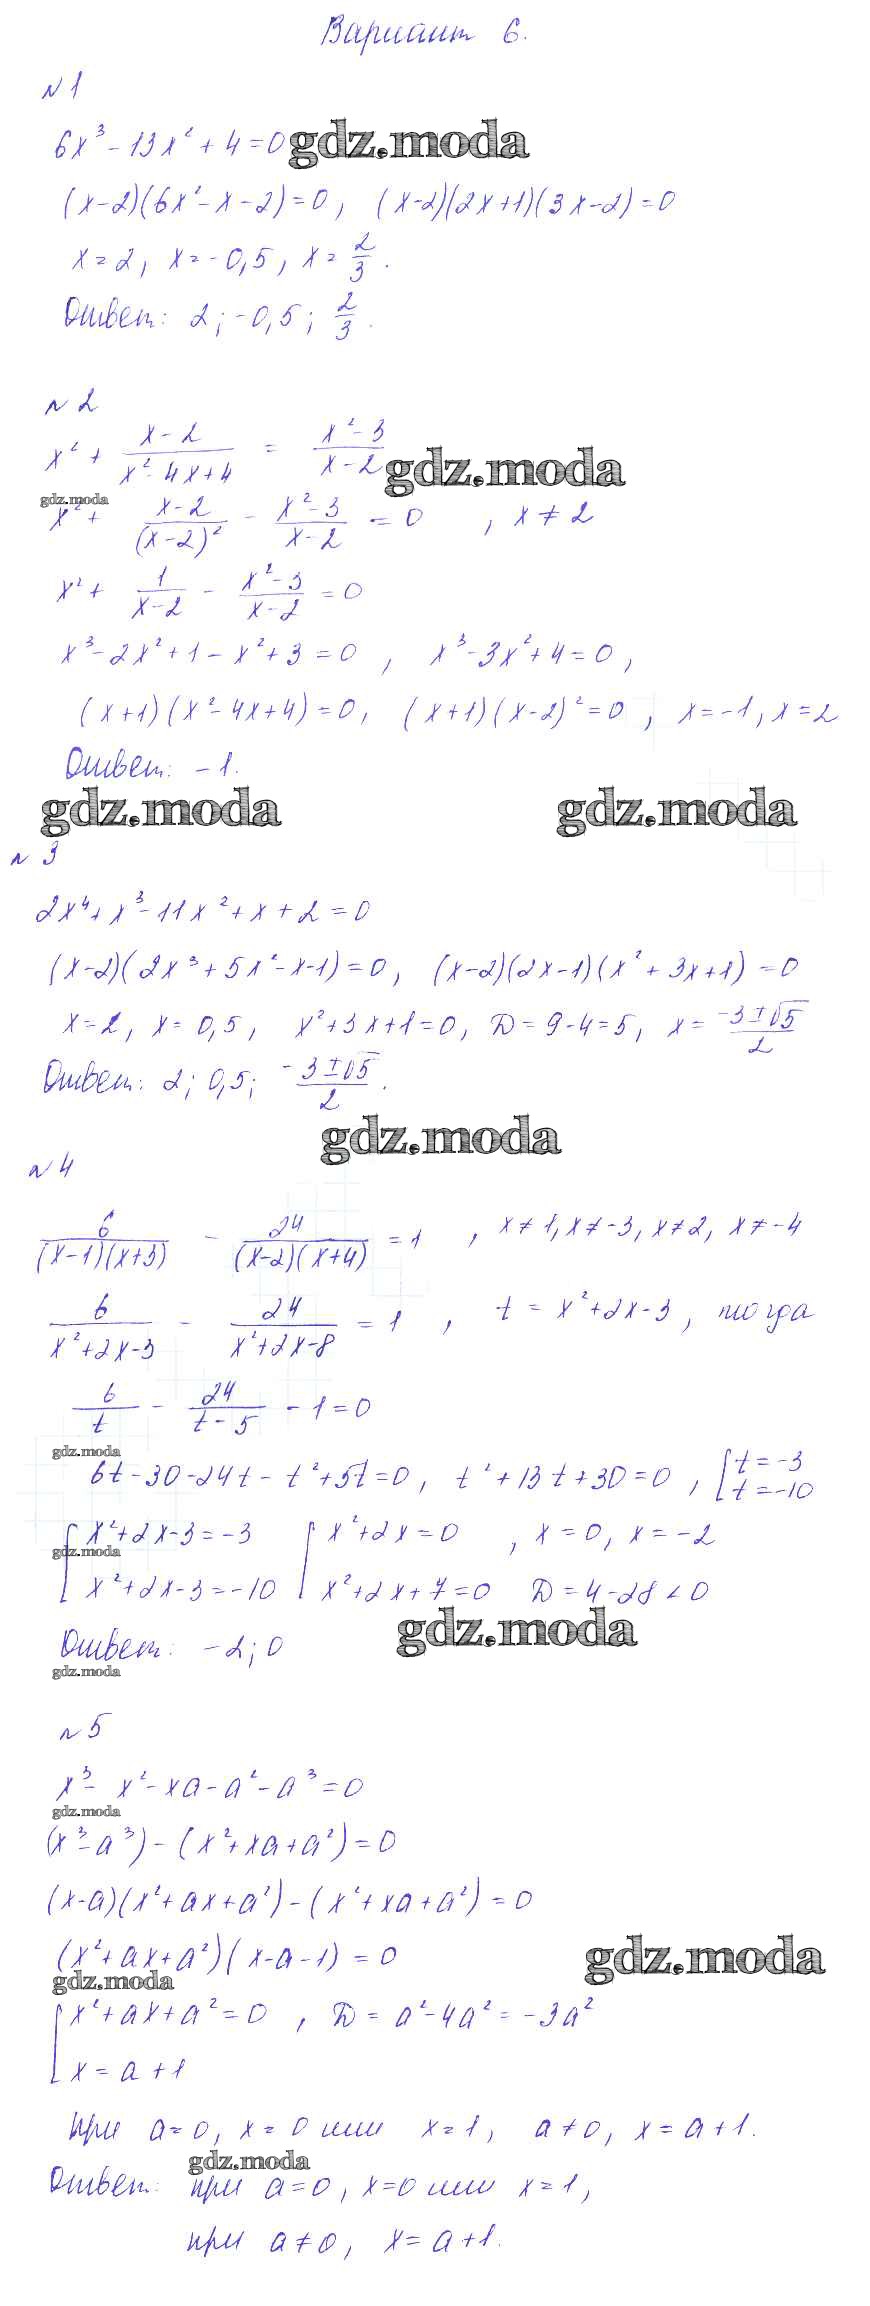 Вариант 6.
№1
6x³-13x²+4=0 gdz.moda
(x-2)(6x²-x-2)=0, (x-2)(2x+1)(3x-2)=0
x=2, x=-0,5, x=2/3.
Ответ: 2; -0,5; 2/3.
№2
x² + (x-2)/(x²-4x+4) = (x²-3)/(x-2) gdz.moda
gdz.moda
x² + (x-2)/(x-2)² - (x²-3)/(x-2) = 0, x≠2
x² + 1/(x-2) - (x²-3)/(x-2) = 0
x³-2x²+1-x²+3=0, x³-3x²+4=0,
(x+1)(x²-4x+4)=0, (x+1)(x-2)²=0, x=-1, x=2
Ответ: -1.
gdz.moda gdz.moda
№3
2x⁴+x³-11x²+x+2=0
(x-2)(2x³+5x²-x-1)=0, (x-2)(2x-1)(x²+3x+1)=0
x=2, x=0,5, x²+3x+1=0, D=9-4=5, x=(-3±√5)/2
Ответ: 2; 0,5; (-3±√5)/2.
gdz.moda
№4
6/((x-1)(x+3)) - 24/((x-2)(x+4)) = 1, x≠1, x≠-3, x≠2, x≠-4
6/(x²+2x-3) - 24/(x²+2x-8) = 1, t=x²+2x-3, тогда
6/t - 24/(t-5) - 1=0
gdz.moda
6t-30-24t-t²+5t=0, t²+13t+30=0, [t=-3
t=-10
[x²+2x-3=-3 [x²+2x=0, x=0, x=-2
gdz.moda
x²+2x-3=-10 x²+2x+7=0 D=4-28<0
Ответ: -2; 0 gdz.moda
gdz.moda
№5
x³-x²-xa-a²-a³=0
gdz.moda
(x³-a³)-(x²+xa+a²)=0
(x-a)(x²+ax+a²)-(x²+xa+a²)=0
(x²+ax+a²)(x-a-1)=0 gdz.moda
gdz.moda
[x²+ax+a²=0, D=a²-4a²=-3a²
x=a+1
при a=0, x=0 или x=1, a≠0, x=a+1.
gdz.moda
Ответ: при a=0, x=0 или x=1,
при a≠0, x=a+1.